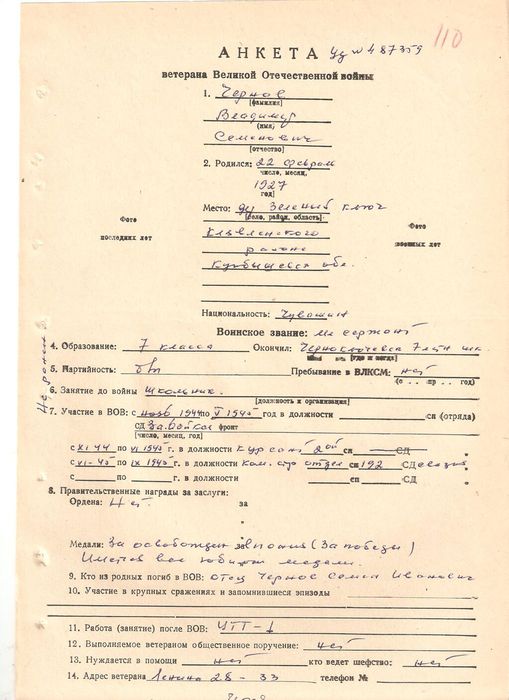 110
АНКЕТА уд № 487359
ветерана Великой Отечественной войны
1. Чернов
(фамилия)
Владимир
(имя)
Семенович
(отчество)
2. Родился: 22 февраля
число, месяц,
1927
год)
Место: Зеленый ключ
(село, район, область)
Фото
последних лет
Фото
военных лет
Клявлинского
района
Куйбышевск обл.
Национальность: Чувашин
Воинское звание: мл сержант
4. Образование: 7 класса Окончил: 7
(где и когда)
5. Партийность: б/п Пребывание в ВЛКСМ: нет
(с . . пр . . год)
6. Занятие до войны школьник.
(должность и организация)
7. Участие в ВОВ: с нояб 1944 по V 1945 год в должности сп (отряда)
СД Заб. фронт
(число, месяц, год)
с XI-44 по VI 1945 г. в должности Курсант сп СД
с VI-45 по IX 1945 г. в должности Ком. стр отдел сп 192 СД
с по г. в должности сп СД
8. Правительственные награды за заслуги:
Ордена: Нет. за
"
"
Медали: За освобожден Японии (За победы)
все юбил медали.
9. Кто из родных погиб в ВОВ: отец Чернов Семен Иванович
10. Участие в крупных сражениях и запомнившиеся эпизоды
11. Работа (занятие) после ВОВ: УТТ-1
12. Выполняемое ветераном общественное поручение: нет
13. Нуждается в помощи нет кто ведет шефство: нет
14. Адрес ветерана Ленина 28 - 33 телефон №